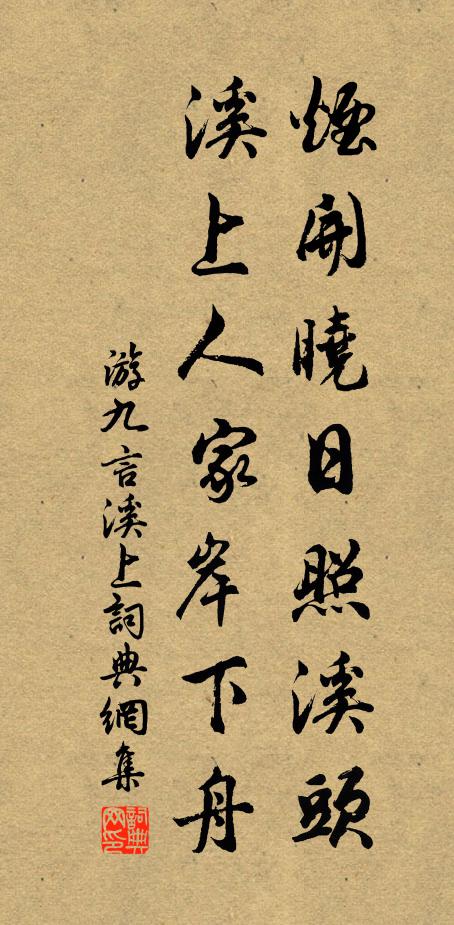 煙開曉日照溪頭
溪上人家岸下舟
游九言溪上詞典網集
詞典
网印